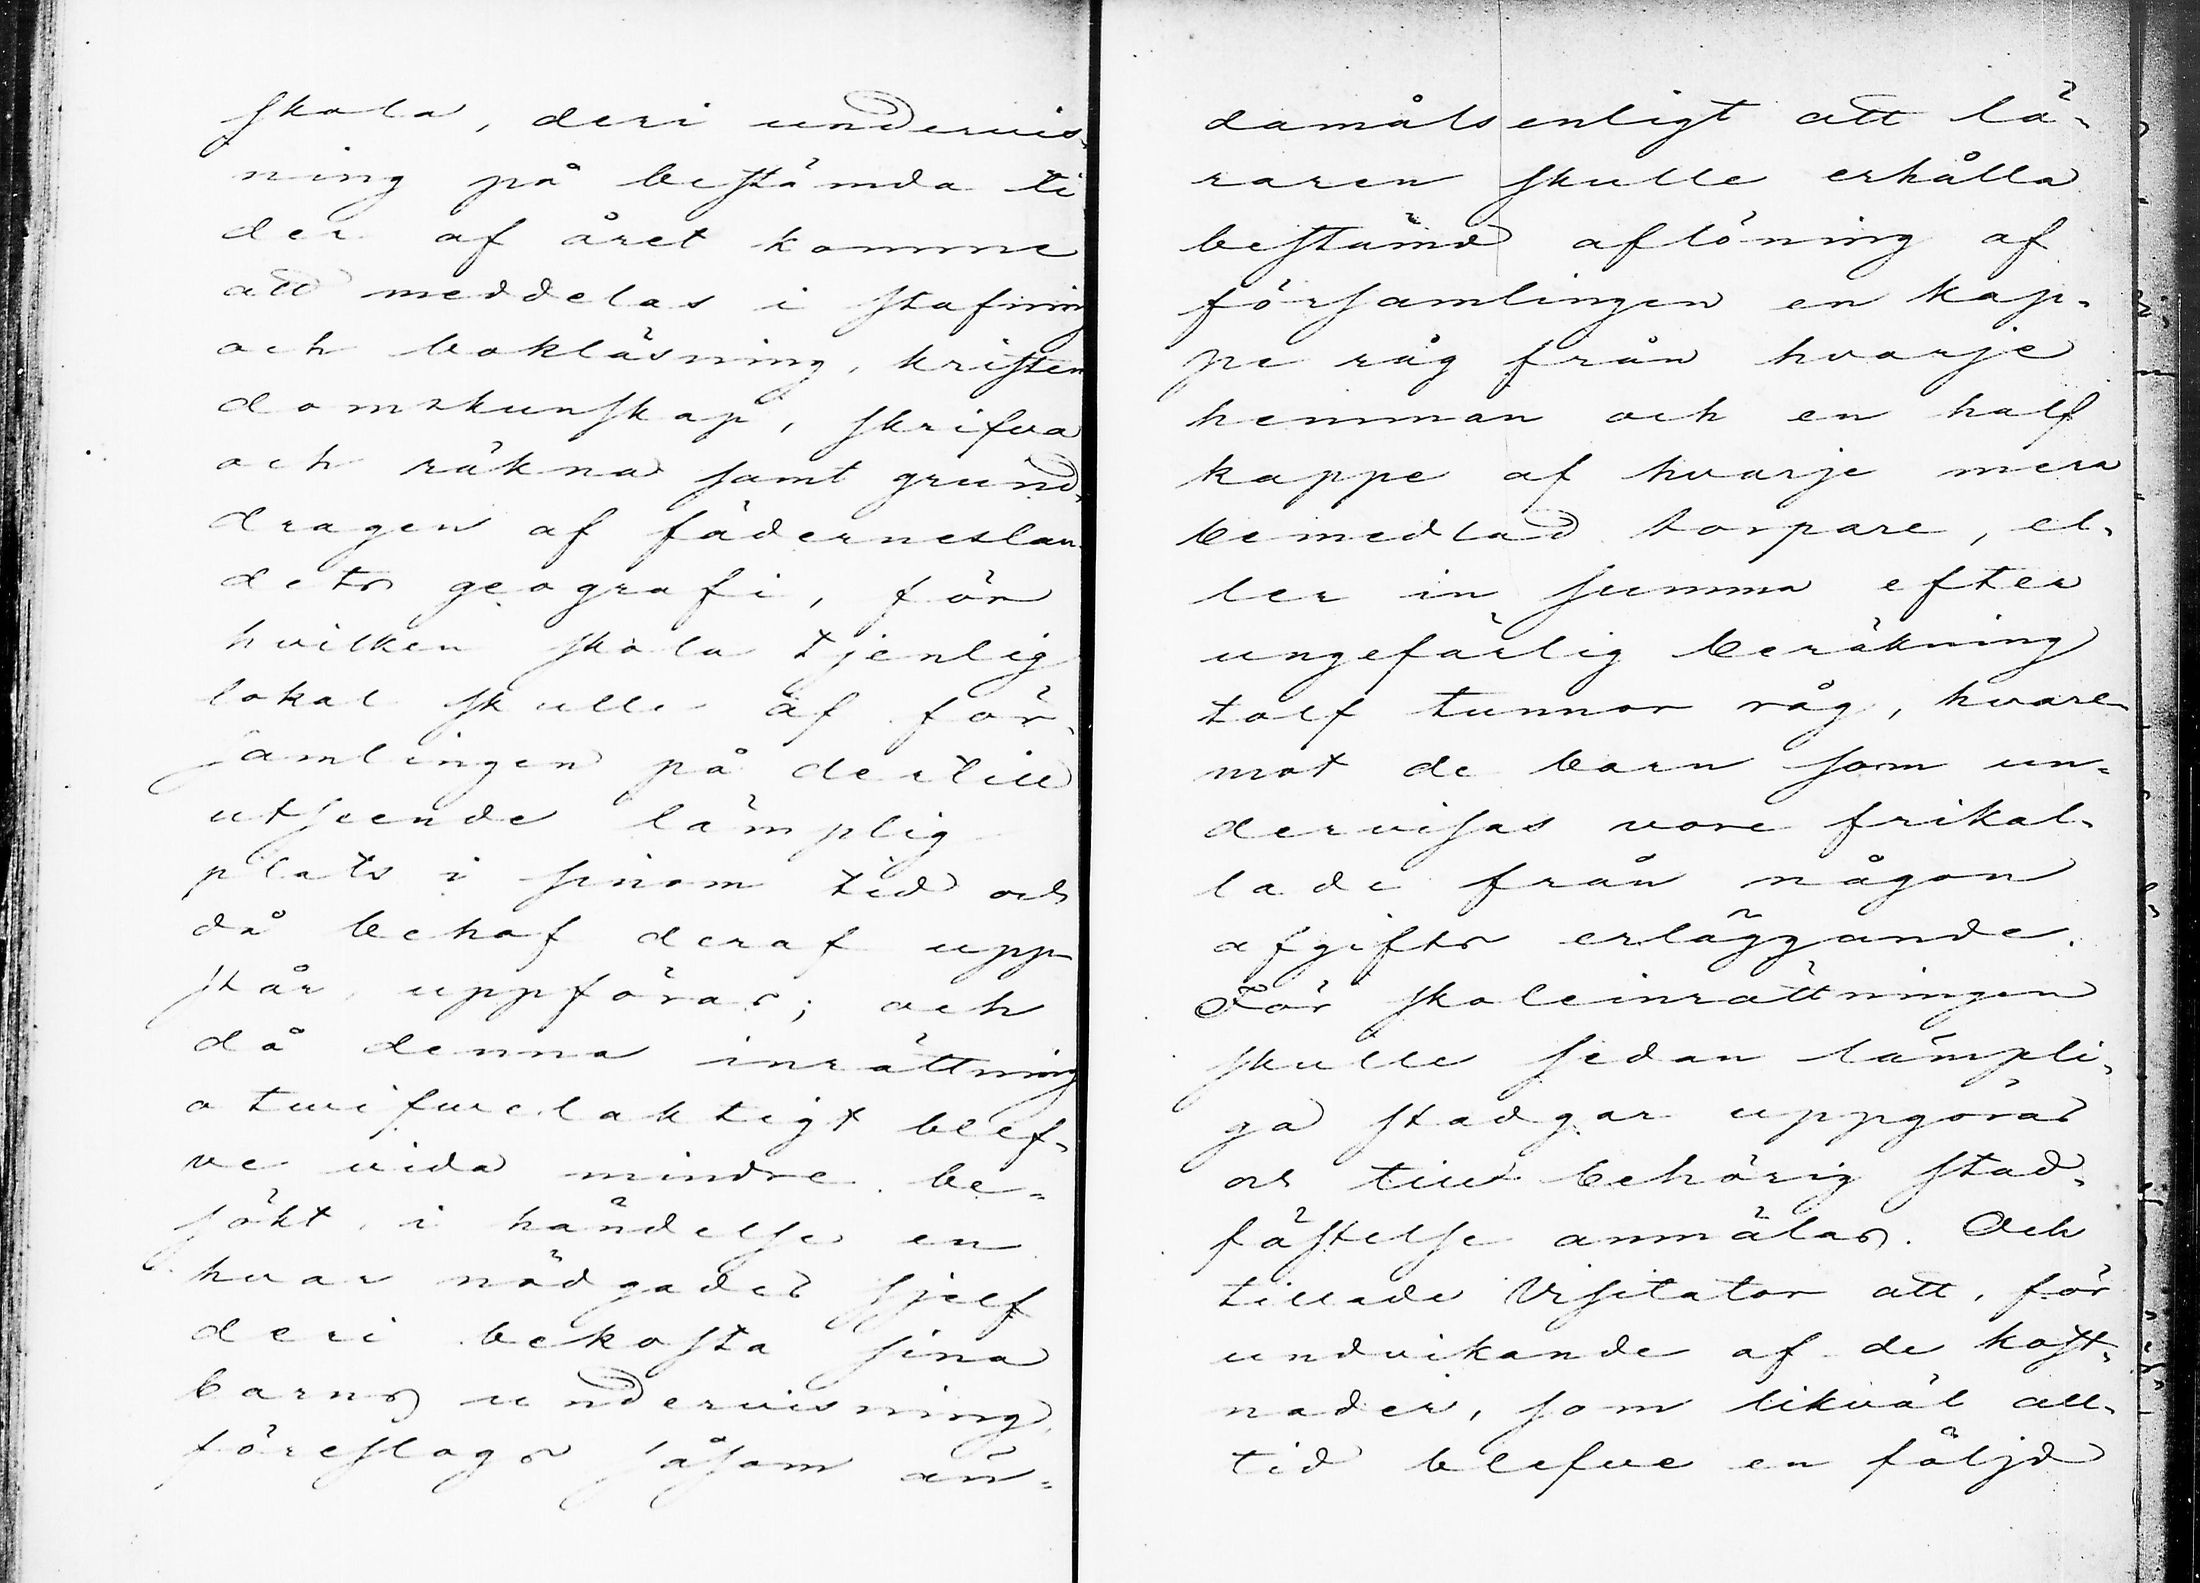 skola, deri undervis-
ning på bestämda ti
der af året komme
att meddelas i stafning
och bokläsning, kristen
domskunskap, skrifva
och räkna samt grund-
dragen af fäderneslan-
dets geografi, för
hvilken skola tjenlig
lokal skulle af för-
samlingen på dertill
utseende lämplig
plats i sinom tid och
då behof deraf upp-
står, uppföras; och
då denna inrättning
otvifvelaktigt blef-
ve vida mindre be-
sökt, i händelse en
hvar nödgades sjelf
deri bekosta sina
barns undervisning,
föreslogs såsom än-
damålsenligt att lä-
raren skulle erhålla
bestämd aflöning af
församlingen en kap-
pe råg från hvarje
hemman och en half
kappe af hvarje mera
bemedlad torpare, el-
ler in summa efter
ungefärlig beräkning
tolf tunnor råg, hvare-
mot de barn som un-
dervisas vore frikal-
lade från någon
afgifts erläggande.
För skoleinrättningen
skulle sedan lämpli-
ga stadgar uppgöras
och till behörig stad-
fästelse anmälas. Och
tillade Visitator att, för
undvikande af de kost-
nader, som likväl all-
tid blefve en följd